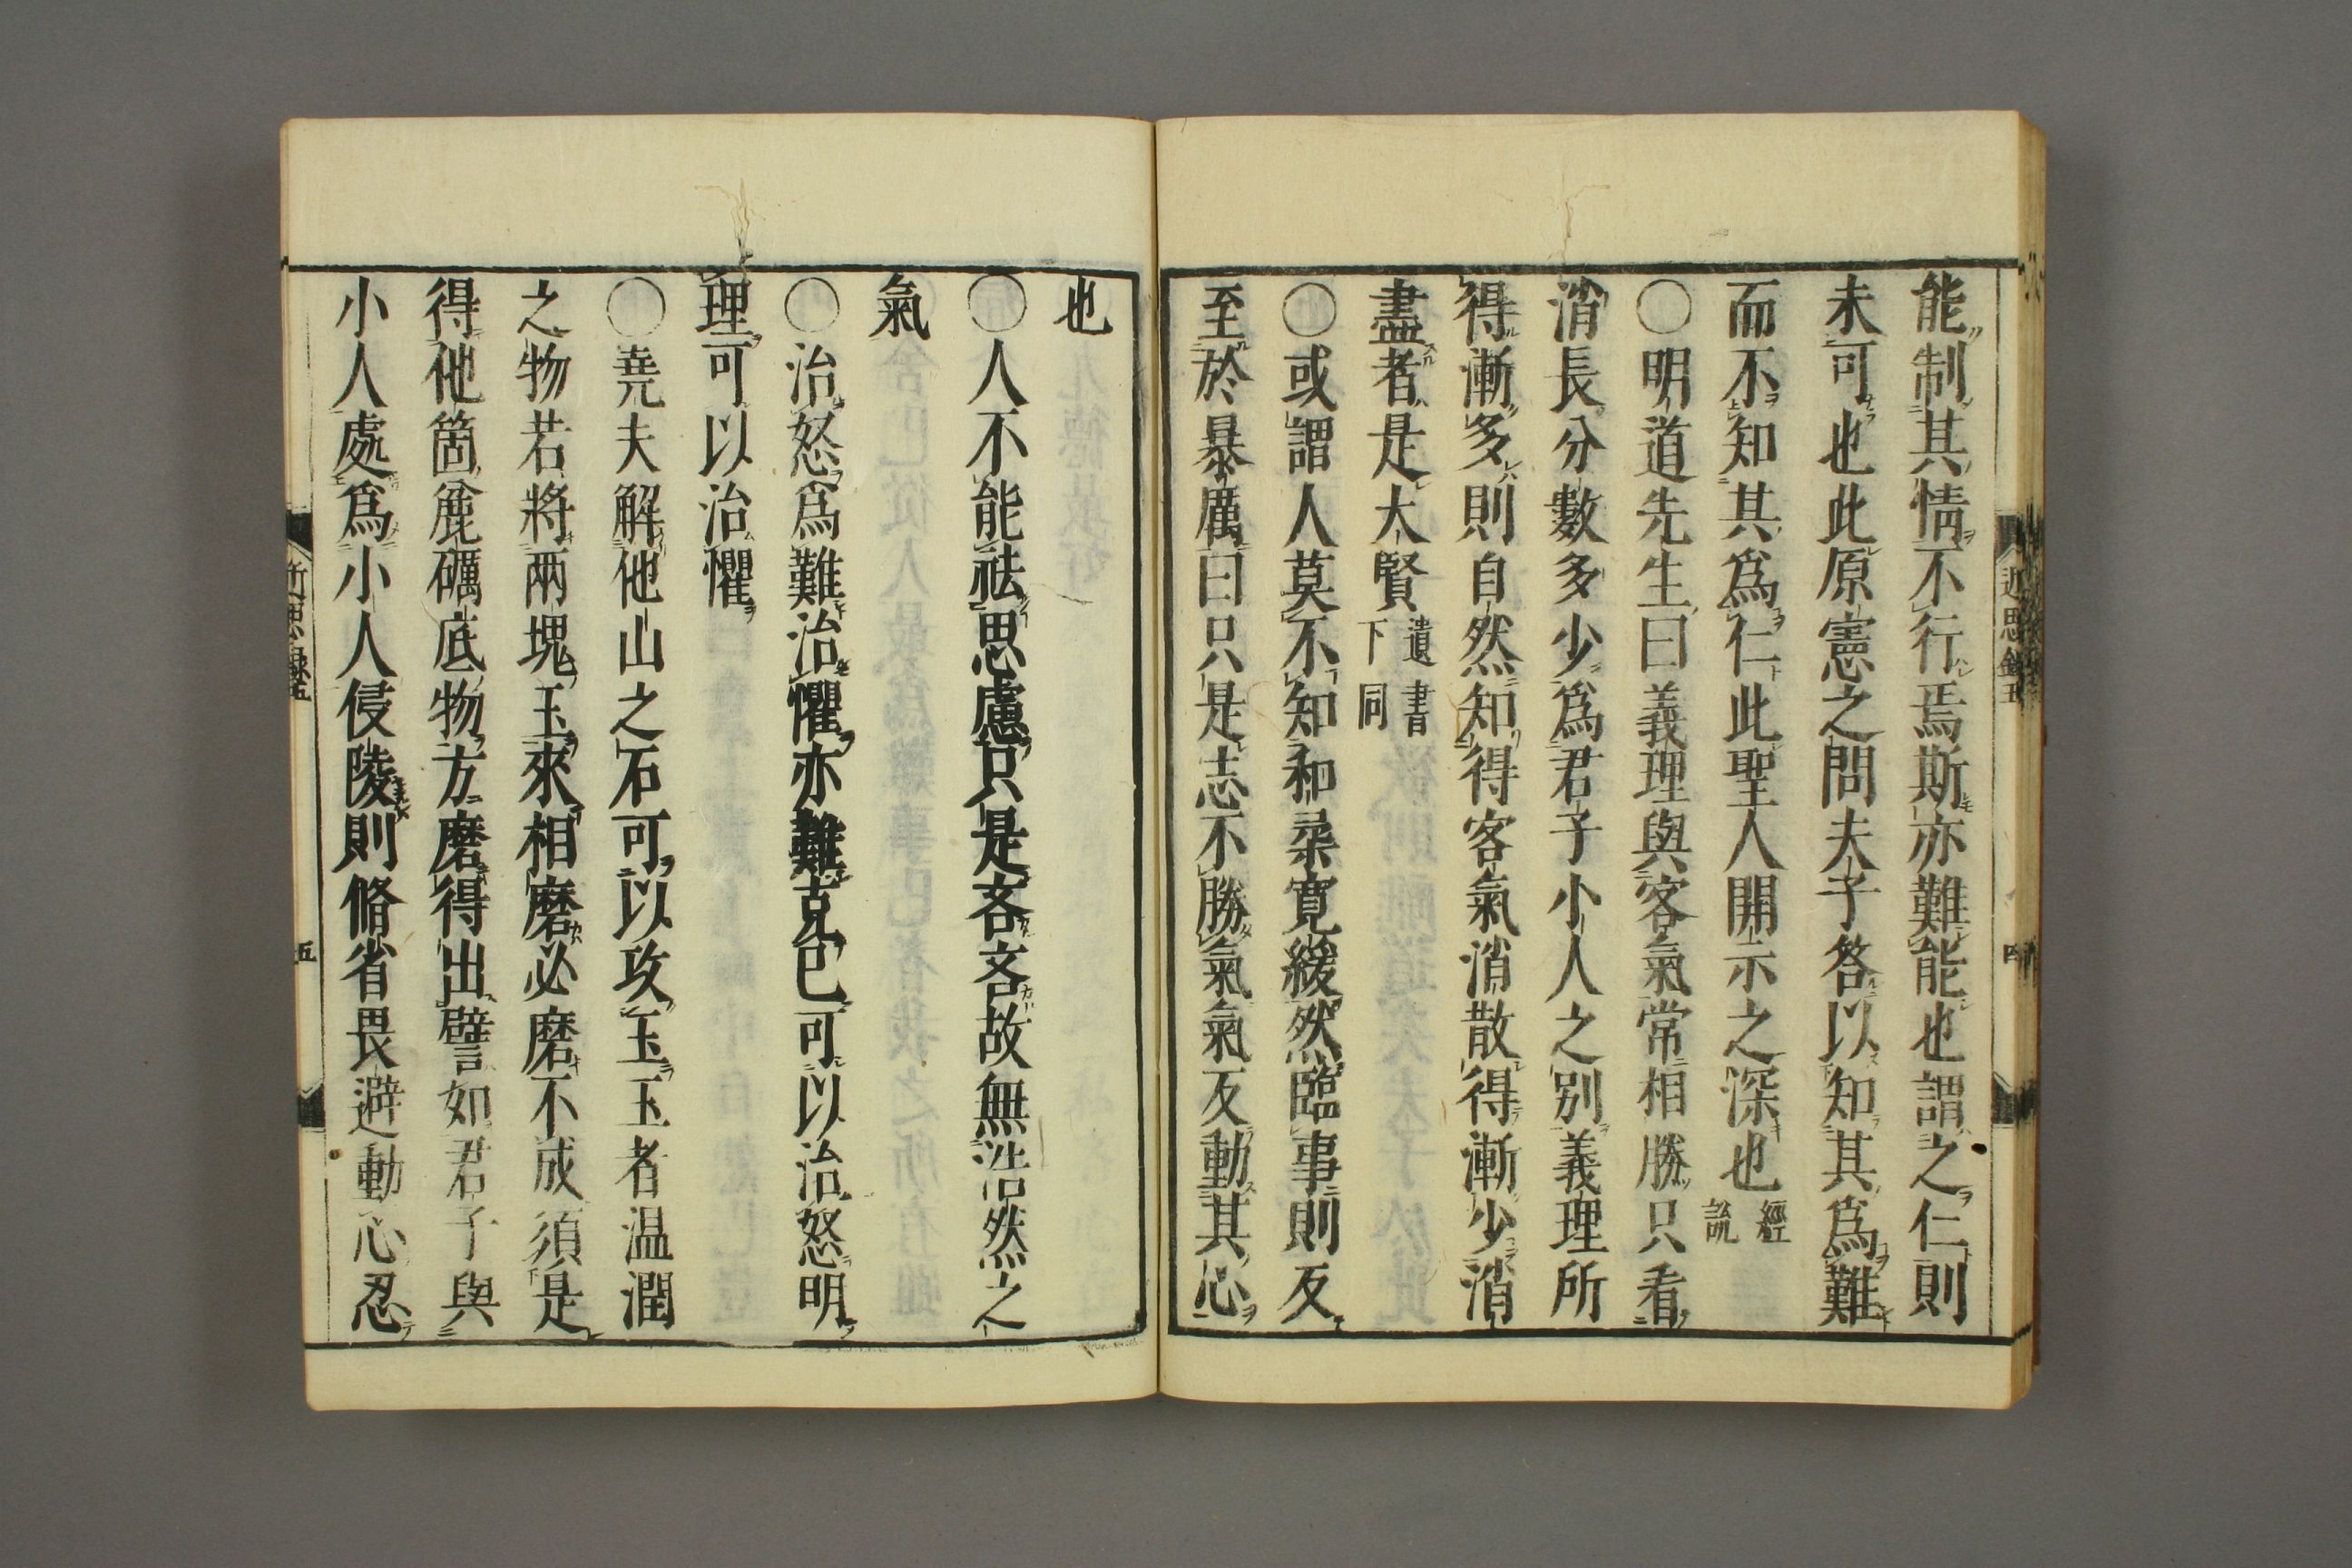 能制其情不行焉斯亦難能也謂之仁則
未可也此原憲之問夫子答以知其爲難
而不知其爲仁此聖人開示之深也經說
○明道先生曰義理與客氣常相勝只看
消長分數多少爲君子小人之別義理所
得漸多則自然知得客氣消散得漸少消
盡者是大賢遺書下同
○或謂人莫不知和柔寬緩然臨事則反
至於暴厲曰只是志不勝氣氣反動其心
也
○人不能祛思慮只是吝吝故無浩然之
氣
○治怒爲難治懼亦難克己可以治怒明
理可以治懼
○堯夫解他山之石可以攻玉玉者温潤
之物若將兩塊玉來相磨必磨不成須是
得他箇麁礪底物方磨得出譬如君子與
小人處爲小人侵陵則脩省畏避動心忍
近思錄五
四
近思錄五
五